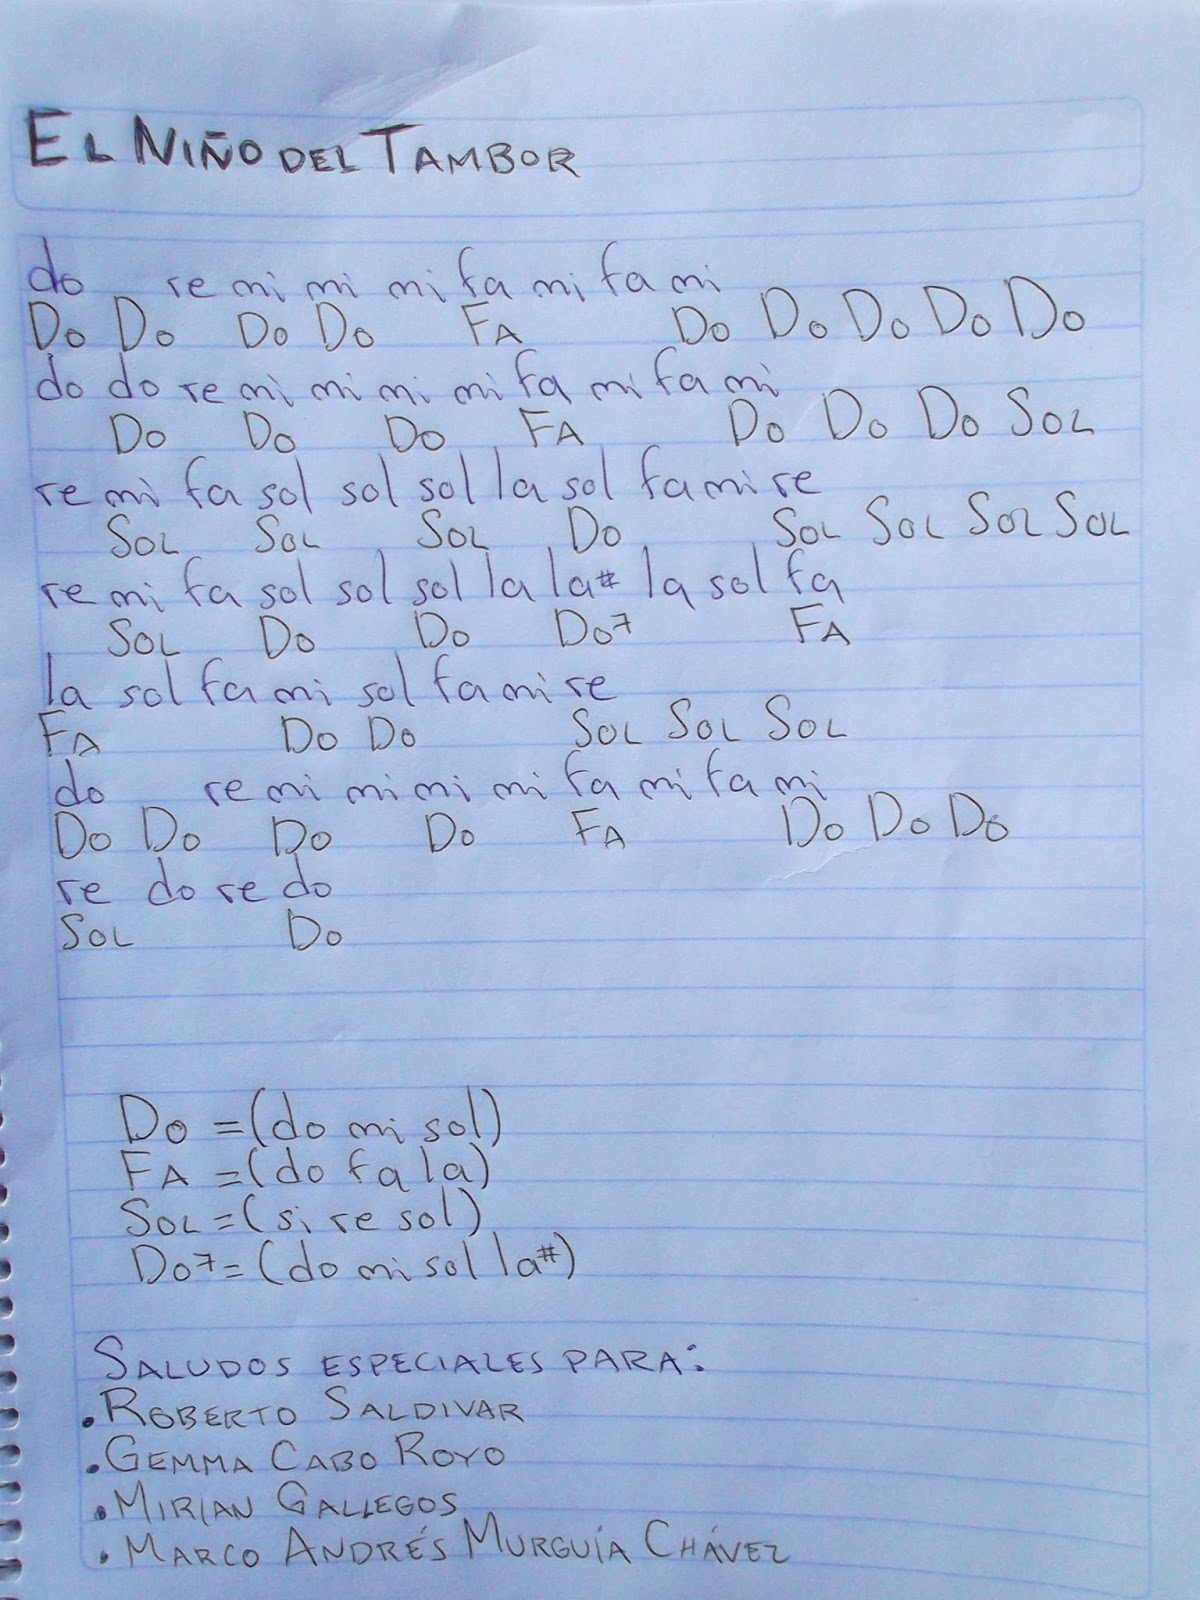 EL NIÑO DEL TAMBOR
do re mi mi mi fa mi fa mi
Do Do Do Do FA Do Do Do Do Do
do do re mi mi mi mi fa mi fa mi
Do Do Do FA Do Do Do SOL
re mi fa sol sol sol la sol fa mi re
SOL SOL SOL Do SOL SOL SOL SOL
re mi fa sol sol sol la la# la sol fa
SOL Do Do Do7 FA
la sol fa mi sol fa mi re
FA Do Do SOL SOL SOL
do re mi mi mi mi fa mi fa mi
Do Do Do Do FA Do Do Do
re do re do
SOL Do
Do =(do mi sol)
FA =(do fa la)
SOL=(si re sol)
Do7=(do mi sol la#)
SALUDOS ESPECIALES PARA:
.ROBERTO SALDIVAR
.GEMMA CABO ROYO
.MIRIAN GALLEGOS
.MARCO ANDRÉS MURGUÍA CHÁVEZ